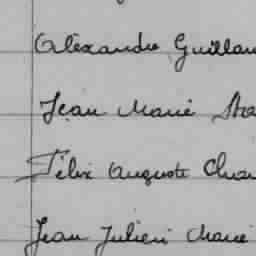 Alexandre Guillau
Jean Marie
Félix Auguste
Jean Julien Marie